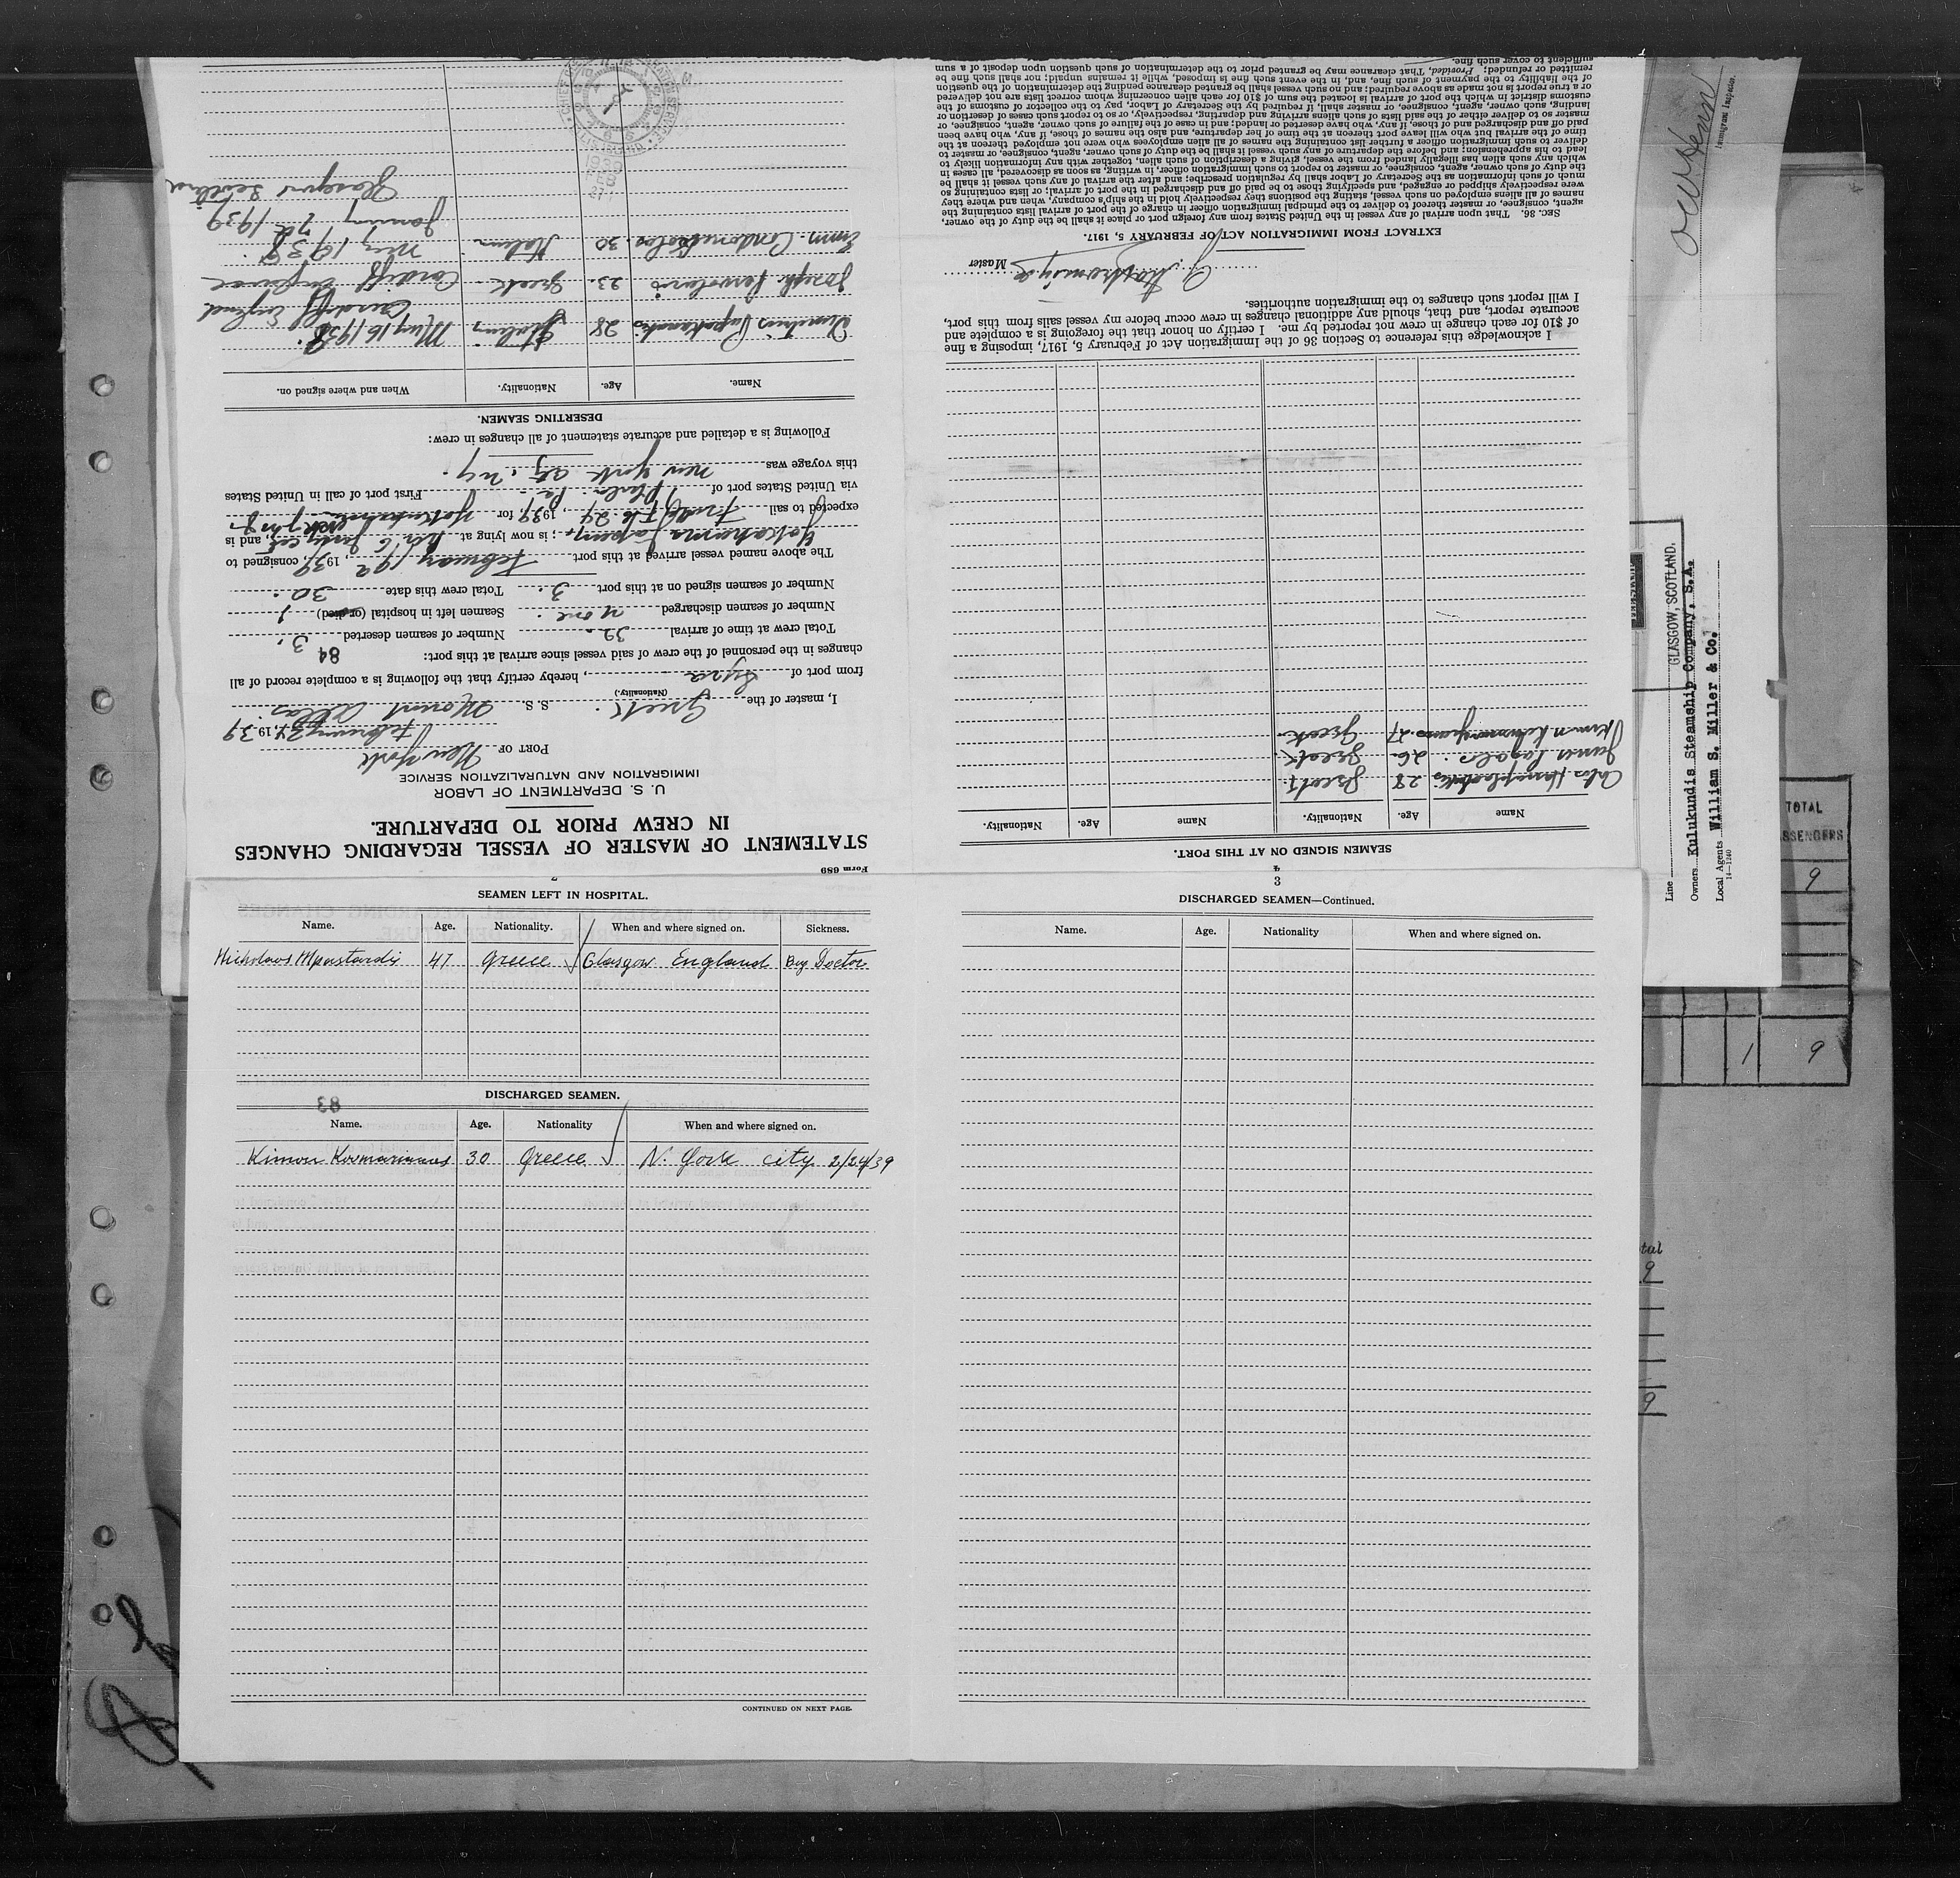 Form 689
STATEMENT OF MASTER OF VESSEL REGARDING CHANGES
IN CREW PRIOR TO DEPARTURE.
U. S. DEPARTMENT OF LABOR
IMMIGRATION AND NATURALIZATION SERVICE
PORT OF New York
February 24, 1939
I, master of the Greek S. S. Mount Atlas
(Nationality.)
from port of Syra, hereby certify that the following is a complete record of all
changes in the personnel of the crew of said vessel since arrival at this port: 84
Total crew at time of arrival 32. Number of seamen deserted 3.
Number of seamen discharged none. Seamen left in hospital (or died) 1
Number of seamen signed on at this port 3. Total crew this date 30.
The above named vessel arrived at this port February 19, 1939, consigned to
; is now lying at Jersey City, and is
expected to sail Feb 24, 1939, for
via United States port of Phila. Pa. First port of call in United States
this voyage was New York City. N.Y.
Following is a detailed and accurate statement of all changes in crew:
DESERTING SEAMEN.
Name. Age. Nationality. When and where signed on.
Dimitrios 28 Italian May 16 1938.
Cardiff England
Joseph 23. Greek Cardiff
Emm. 30 Italian 1938.
January 7 1939
Glasgow Scotland
4
SEAMEN SIGNED ON AT THIS PORT.
Name Age. Nationality. Name Age. Nationality.
28 Greek
26 Greek.
27 Greek
I acknowledge this reference to Section 36 of the Immigration Act of February 5, 1917, imposing a fine
of $10 for each change in crew not reported by me. I certify on honor that the foregoing is a complete and
accurate report, and that, should any additional changes in crew occur before my vessel sails from this port,
I will report such changes to the immigration authorities.
Master
EXTRACT FROM IMMIGRATION ACT OF FEBRUARY 5, 1917.
SEC. 36. That upon arrival of any vessel in the United States from any foreign port or place it shall be the duty of the owner,
agent, consignee, or master thereof to deliver to the principal immigration officer in charge of the port of arrival lists containing the
names of all aliens employed on such vessel, stating the positions they respectively hold in the ship's company, when and where they
were respectively shipped or engaged, and specifying those to be paid off and discharged in the port of arrival; or lists containing so
much of such information as the Secretary of Labor shall by regulation prescribe; and after the arrival of any such vessel it shall be
the duty of such owner, agent, consignee, or master to report to such immigration officer, in writing, as soon as discovered, all cases in
which any such alien has illegally landed from the vessel, giving a description of such alien, together with any information likely to
lead to his apprehension; and before the departure of any such vessel it shall be the duty of such owner, agent, consignee, or master to
deliver to such immigration officer a further list containing the names of all alien employees who were not employed thereon at the
time of the arrival but who will leave port thereon at the time of her departure, and also the names of those, if any, who have been
paid off and discharged and of those, if any, who have deserted or landed; and in case of the failure of such owner, agent, consignee, or
master so to deliver either of the said lists of such aliens arriving and departing, respectively, or so to report such cases of desertion or
landing, such owner, agent, consignee, or master shall, if required by the Secretary of Labor, pay to the collector of customs of the
customs district in which the port of arrival is located the sum of $10 for each alien concerning whom correct lists are not delivered
or a true report is not made as above required; and no such vessel shall be granted clearance pending the determination of the question
of the liability to the payment of such fine, and, in the event such fine is imposed, while it remains unpaid; nor shall such fine be
remitted or refunded: Provided, That clearance may be granted prior to the determination of such question upon deposit of a sum
sufficient to cover such fine.
2
SEAMEN LEFT IN HOSPITAL.
Name. Age. Nationality. When and where signed on. Sickness.
Nicholaos Mpastardis 47 Greece Glasgow England By Doctor
DISCHARGED SEAMEN.
83
Name. Age. Nationality When and where signed on.
Kimon Koumarianos 30 Greece N. York city 2/24/39
CONTINUED ON NEXT PAGE.
3
DISCHARGED SEAMEN—Continued.
Name. Age. Nationality When and where signed on.
Immigrant Inspector.
Line
GLASGOW, SCOTLAND.
Owners Kulukundis Steamship Company, S.A.
Local Agents William S. Miller & Co.
14—1240
TOTAL
PASSENGERS
9
1 9
9
9